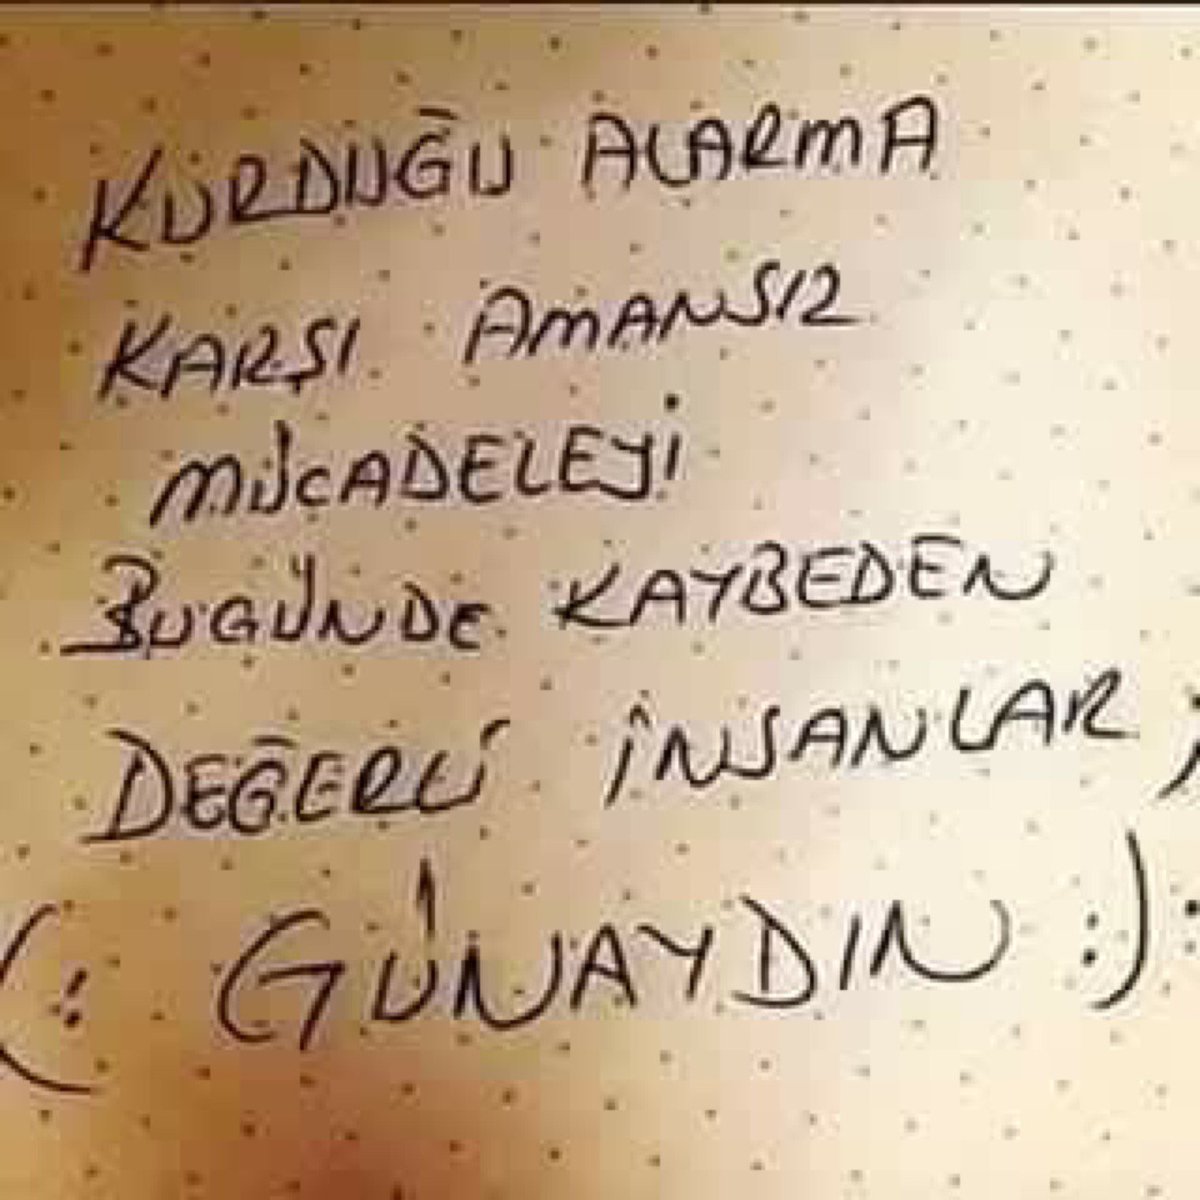 KURDUĞU ALARMA
KARŞI AMANSIZ
MÜCADELEYİ
BUGÜNDE KAYBEDEN
DEĞERLİ İNSANLAR ;
(: GÜNAYDIN :)